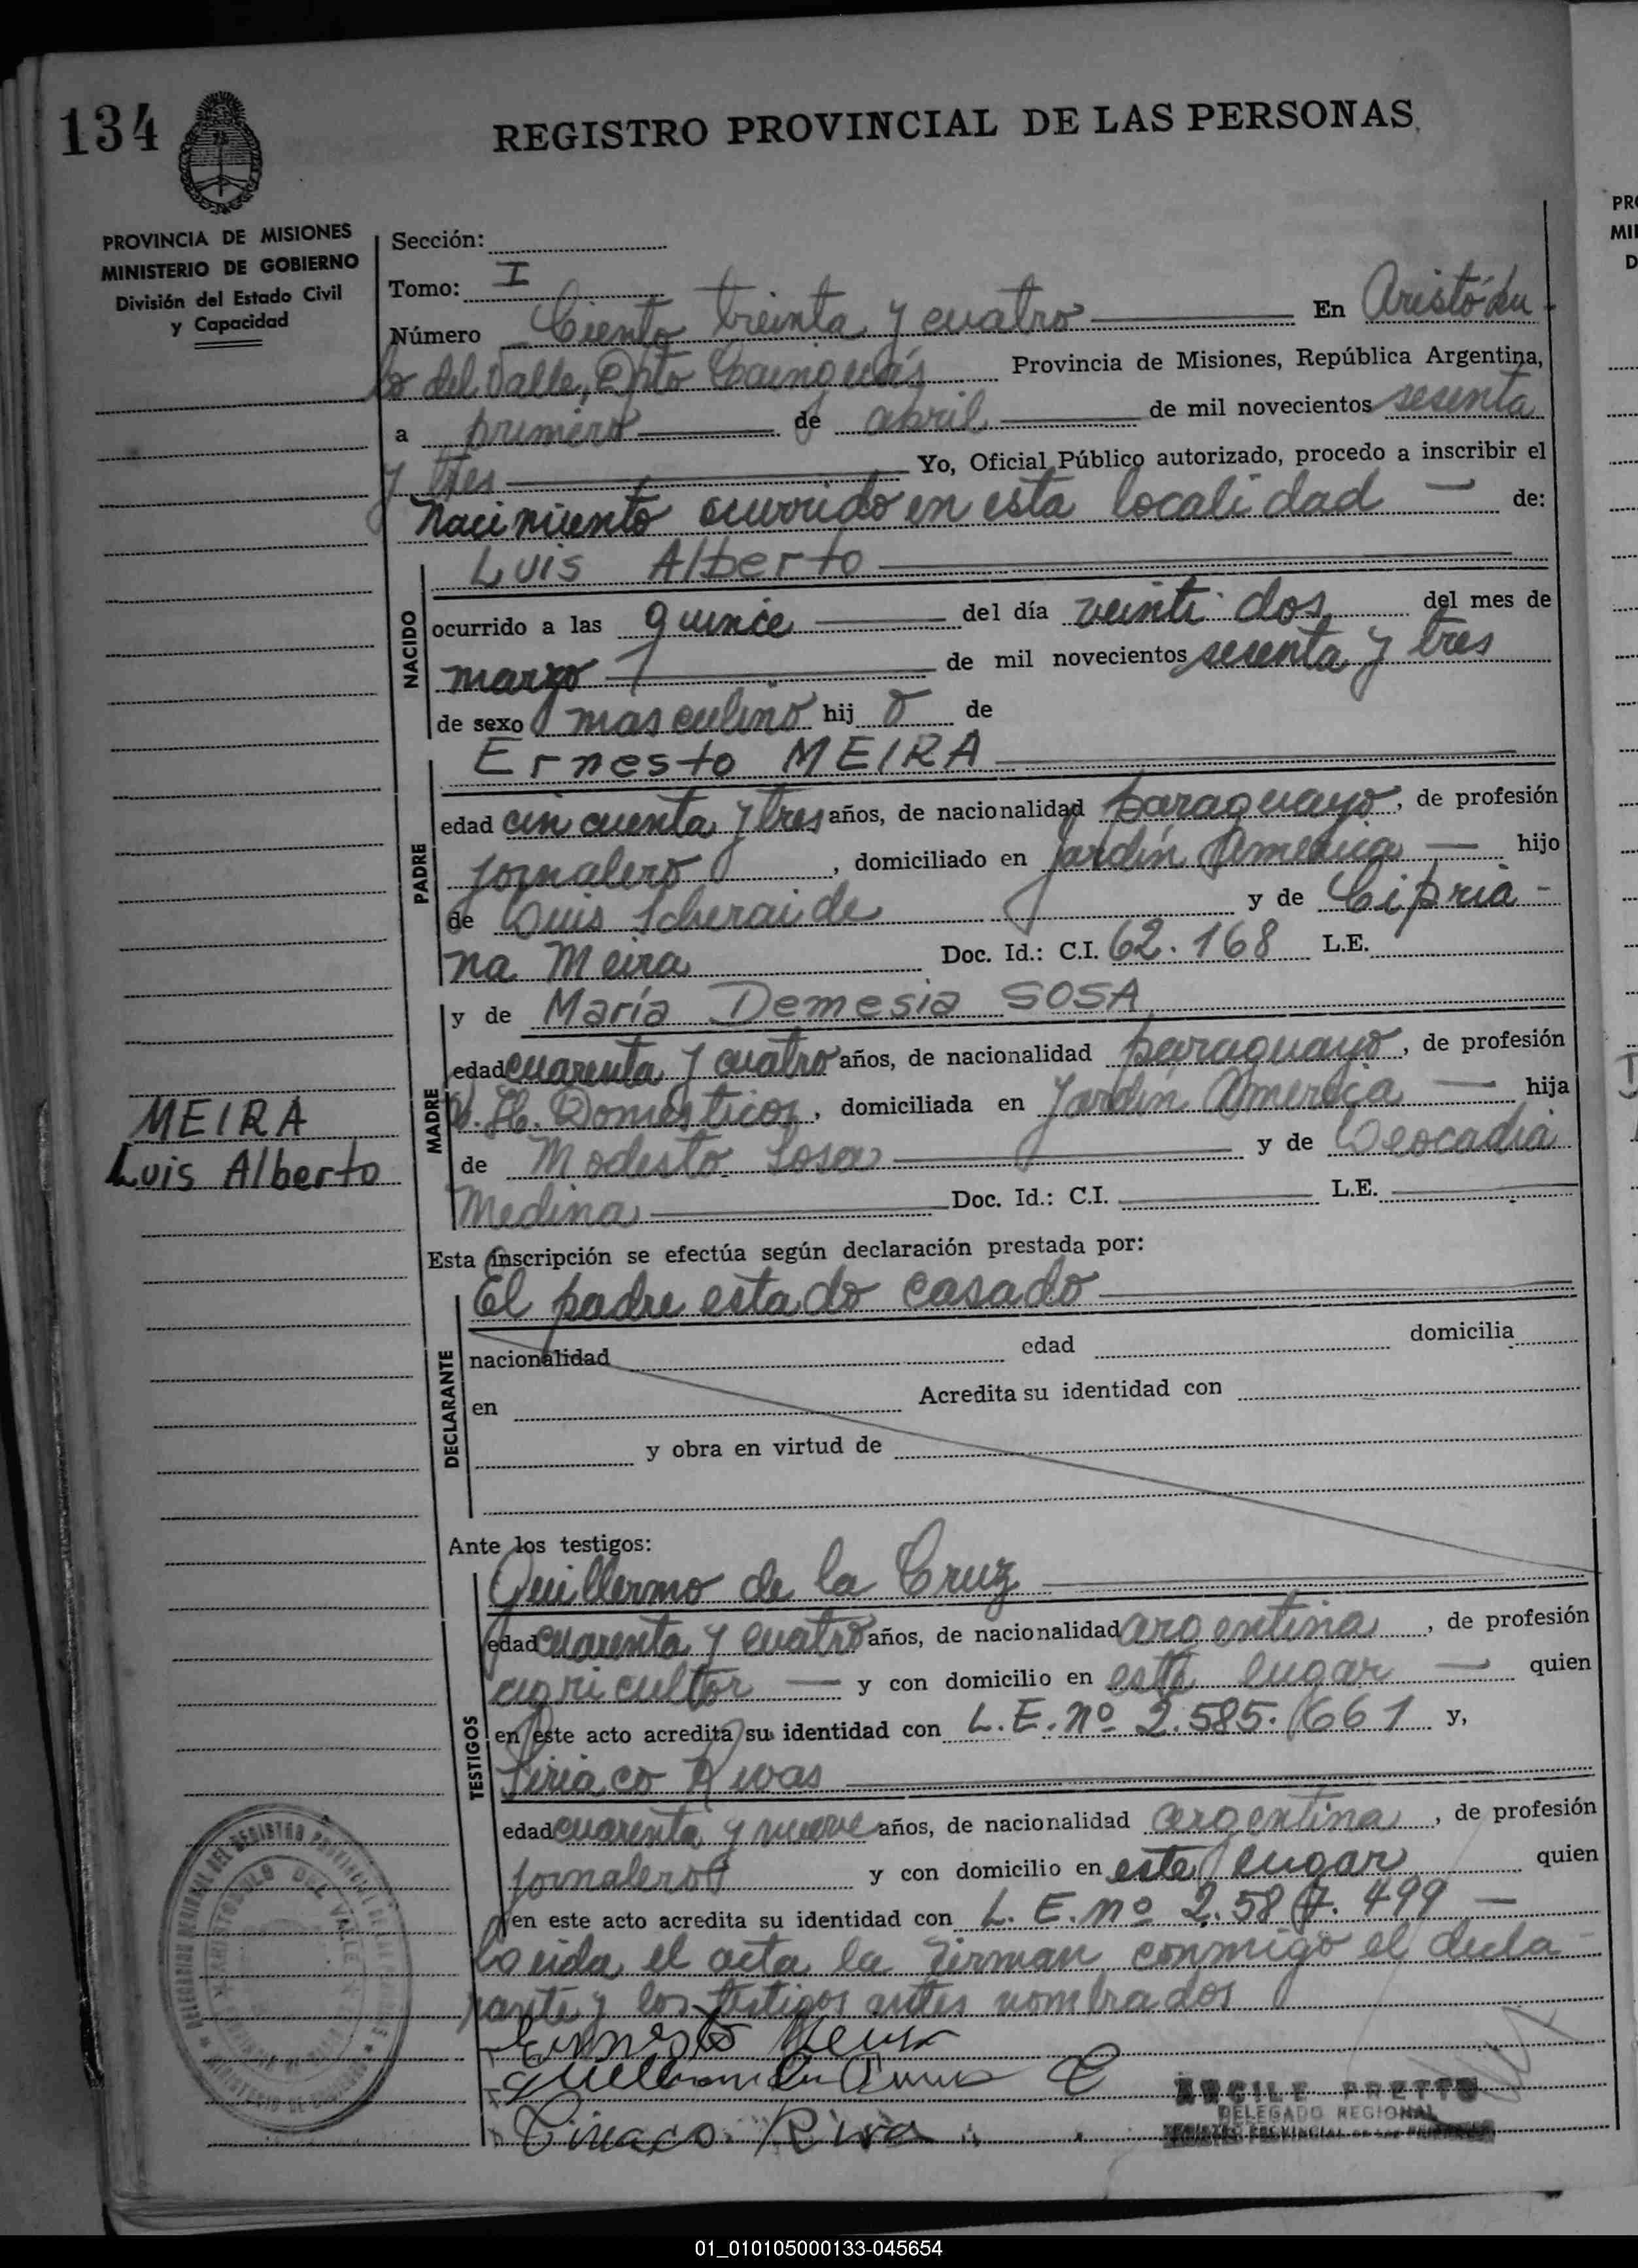 134
REGISTRO PROVINCIAL DE LAS PERSONAS
PROVINCIA DE MISIONES
MINISTERIO DE GOBIERNO
División del Estado Civil
y Capacidad
Sección:
Tomo: I
Número Ciento treinta y cuatro En Aristóbu-
lo del Valle, Dpto Cainguás Provincia de Misiones, República Argentina,
a primero de abril de mil novecientos sesenta
y tres Yo, Oficial Público autorizado, procedo a inscribir el
Nacimiento ocurrido en esta localidad — de:
Luis Alberto
NACIDO
ocurrido a las quince del día veinti dos del mes de
marzo de mil novecientos sesenta y tres
de sexo masculino hij o de
Ernesto MEIRA
PADRE
edad cincuenta y tres años, de nacionalidad paraguayo, de profesión
jornalero, domiciliado en Jardín America — hijo
de Luis y de Cipria-
na Meira Doc. Id.: C.I. 62.168 L.E.
y de María Demesia SOSA
MADRE
edad cuarenta y cuatro años, de nacionalidad paraguayo, de profesión
Domésticos, domiciliada en Jardín America — hija
de Modesto Sosa y de Leocadia
Medina Doc. Id.: C.I. L.E.
MEIRA
Luis Alberto
Esta inscripción se efectúa según declaración prestada por:
El padre estado casado
DECLARANTE
nacionalidad edad domicilia
en Acredita su identidad con
y obra en virtud de
Ante los testigos:
Guillermo de la Cruz
TESTIGOS
edad cuarenta y cuatro años, de nacionalidad argentina, de profesión
agricultor — y con domicilio en este lugar — quien
en este acto acredita su identidad con L.E. nº 2.585.661 y,
Siriaco Rivas
edad cuarenta y nueve años, de nacionalidad argentina, de profesión
jornalero y con domicilio en este lugar quien
en este acto acredita su identidad con L.E. nº 2.587.499 —
Leida el acta la firman conmigo el decla-
rante y los testigos antes nombrados
Ernesto Meira
Siriaco Rivas
PRETTO
DELEGADO REGIONAL
REGISTRO PROVINCIAL DE LAS PERSONAS
01_010105000133-045654